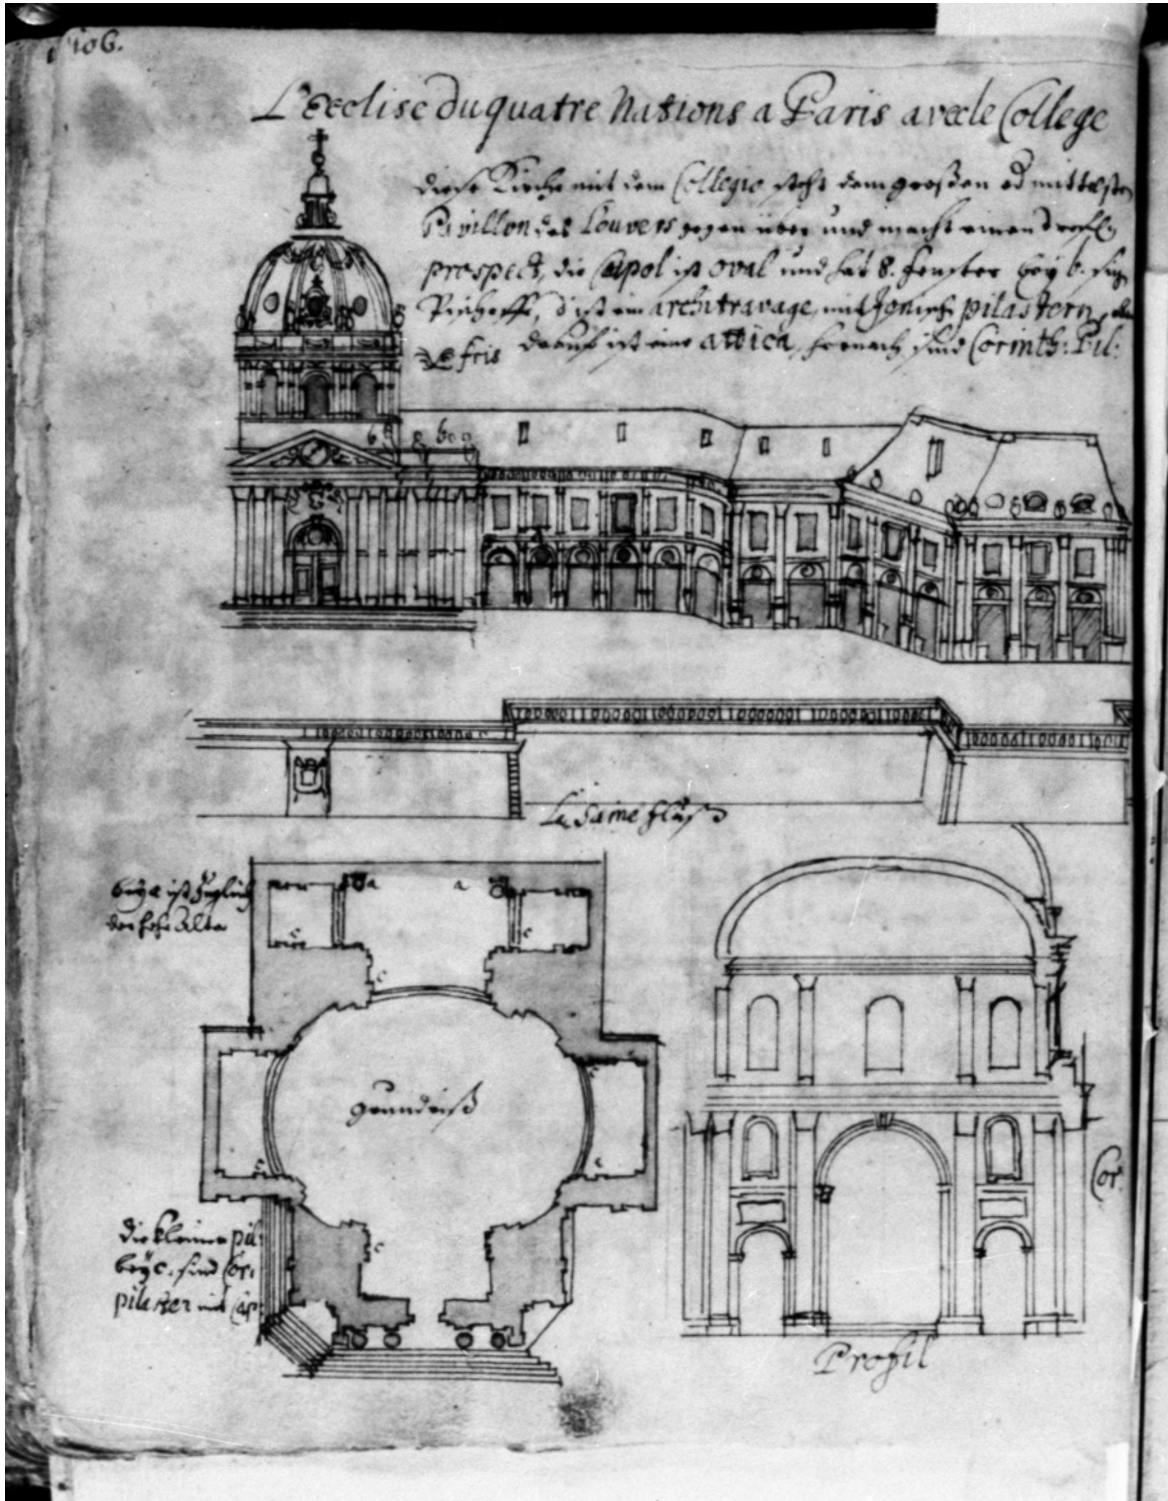 106.
L'eeclise du quatre Nations a Paris avecle College
diese Kirche mit dem Collegio steht dem großen od mittelsten
Pavillon des Louvers gegen über und macht einen
prospect, die Cupol ist oval und hat 8. fenster bey b.
ein architravage, mit Jonisch pilastern,
fris darauf ist eine attica, hernach sind Corinth: Pil:
b
b
La Saine fluß
bey a ist zugleich
der hohe Altar
a
a
c
c
c
c
c
c
grundriß
die kleinen pil
bey c. sind Cor.
pilaster mit Cap
Cor.
Profil